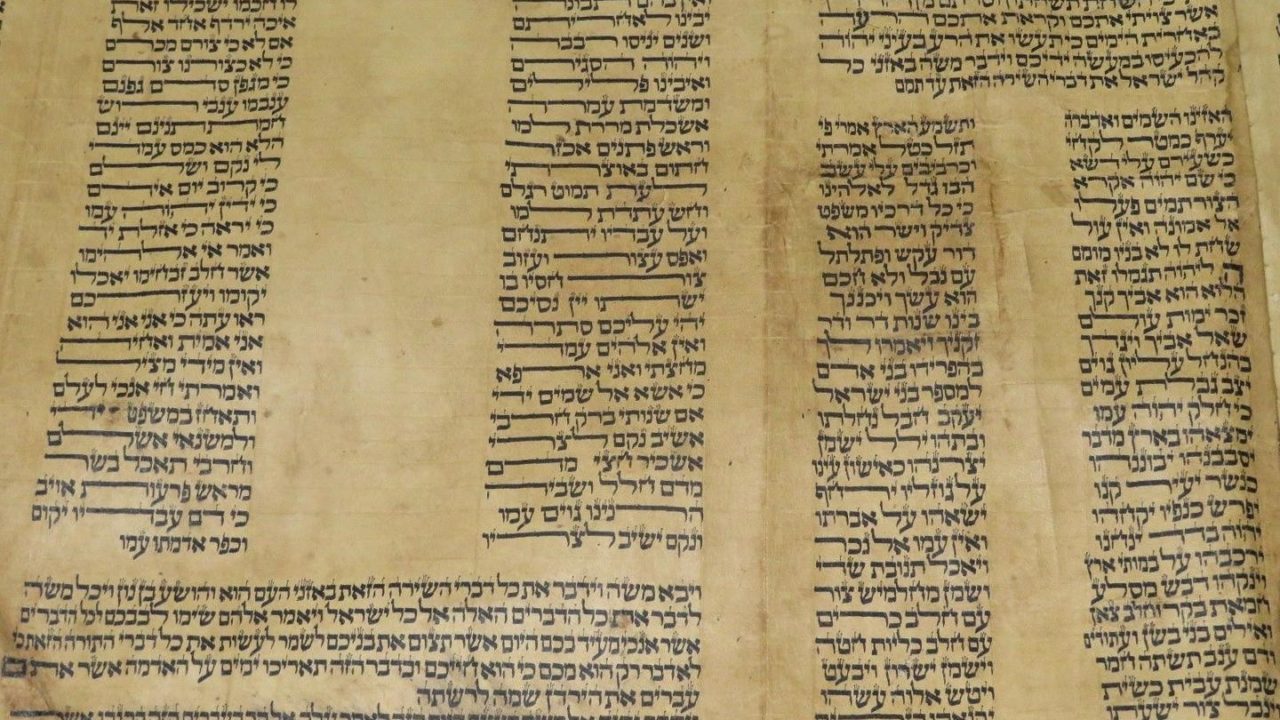 אשר צויתי אתכם וקראת אתכם הרעה
באחרית הימים כי תעשו את הרע בעיני יהוה
להכעיסו במעשה ידיכם וידבר משה באזני כל
קהל ישראל את דברי השירה הזאת עד תמם
האזינו השמים ואדברה ותשמע הארץ אמרי פי
יערף כמטר לקחי תזל כטל אמרתי
כשעירם עלי דשא וכרביבים עלי עשב
כי שם יהוה אקרא הבו גדל לאלהינו
הצור תמים פעלו כי כל דרכיו משפט
אל אמונה ואין עול צדיק וישר הוא
שחת לו לא בניו מומם דור עקש ופתלתל
ה ליהוה תגמלו זאת עם נבל ולא חכם
הלוא הוא אביך קנך הוא עשך ויכננך
זכר ימות עולם בינו שנות דר ודר
שאל אביך ויגדך זקניך ויאמרו לך
בהנחל עליון גוים בהפרידו בני אדם
יצב גבלת עמים למספר בני ישראל
כי חלק יהוה עמו יעקב חבל נחלתו
ימצאהו בארץ מדבר ובתהו ילל ישמן
יסבבנהו יבוננהו יצרנהו כאישון עינו
כנשר יעיר קנו על גוזליו ירחף
יפרש כנפיו יקחהו ישאהו על אברתו
יהוה בדד ינחנו ואין עמו אל נכר
ירכבהו על במותי ארץ ויאכל תנובת שדי
וינקהו דבש מסלע ושמן מחלמיש צור
חמאת בקר וחלב צאן עם חלב כרים
ואילים בני בשן ועתודים עם חלב כליות חטה
ודם ענב תשתה חמר וישמן ישרון ויבעט
שמנת עבית כשית ויטש אלוה עשהו
וינבל צור ישעתו
לו חכמו ישכילו זאת
יבינו לאחריתם איכה ירדף אחד אלף
ושנים יניסו רבבה אם לא כי צורם מכרם
ויהוה הסגירם כי לא כצורנו צורם
ואיבינו פלילים כי מגפן סדם גפנם
ומשדמת עמרה ענבמו ענבי רוש
אשכלת מררת למו חמת תנינם יינם
וראש פתנים אכזר הלא הוא כמס עמדי
חתום באוצרתי לי נקם ושלם
לעת תמוט רגלם כי קרוב יום אידם
וחש עתדת למו כי ידין יהוה עמו
ועל עבדיו יתנחם כי יראה כי אזלת יד
ואפס עצור ועזוב ואמר אי אלהימו
צור חסיו בו אשר חלב זבחימו יאכלו
ישתו יין נסיכם יקומו ויעזרכם
יהי עליכם סתרה ראו עתה כי אני אני הוא
ואין אלהים עמדי אני אמית ואחיה
מחצתי ואני ארפא ואין מידי מציל
כי אשא אל שמים ידי ואמרתי חי אנכי לעלם
אם שנותי ברק חרבי ותאחז במשפט ידי
אשיב נקם לצרי ולמשנאי אשלם
אשכיר חצי מדם וחרבי תאכל בשר
מדם חלל ושביה מראש פרעות אויב
הרנינו גוים עמו כי דם עבדיו יקום
ונקם ישיב לצריו וכפר אדמתו עמו
ויבא משה וידבר את כל דברי השירה הזאת באזני העם הוא והושע בן נון ויכל משה
לדבר את כל הדברים האלה אל כל ישראל ויאמר אלהם שימו לבבכם לכל הדברים
אשר אנכי מעיד בכם היום אשר תצום את בניכם לשמר לעשות את כל דברי התורה הזאת כי
לא דבר רק הוא מכם כי הוא חייכם ובדבר הזה תאריכו ימים על האדמה אשר אתם
עברים את הירדן שמה לרשתה